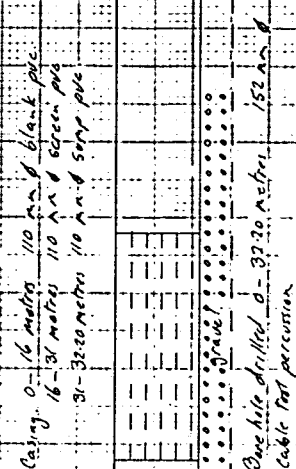 Casing. 0-16 metres 110 mm ϕ blank pvc
16-31 metres 110 mm ϕ screen pvc
31-32.20 metres 110 mm ϕ sump pvc
gravel
Borehole drilled 0-32.20 metres 152 mm ϕ
cable tool percussion